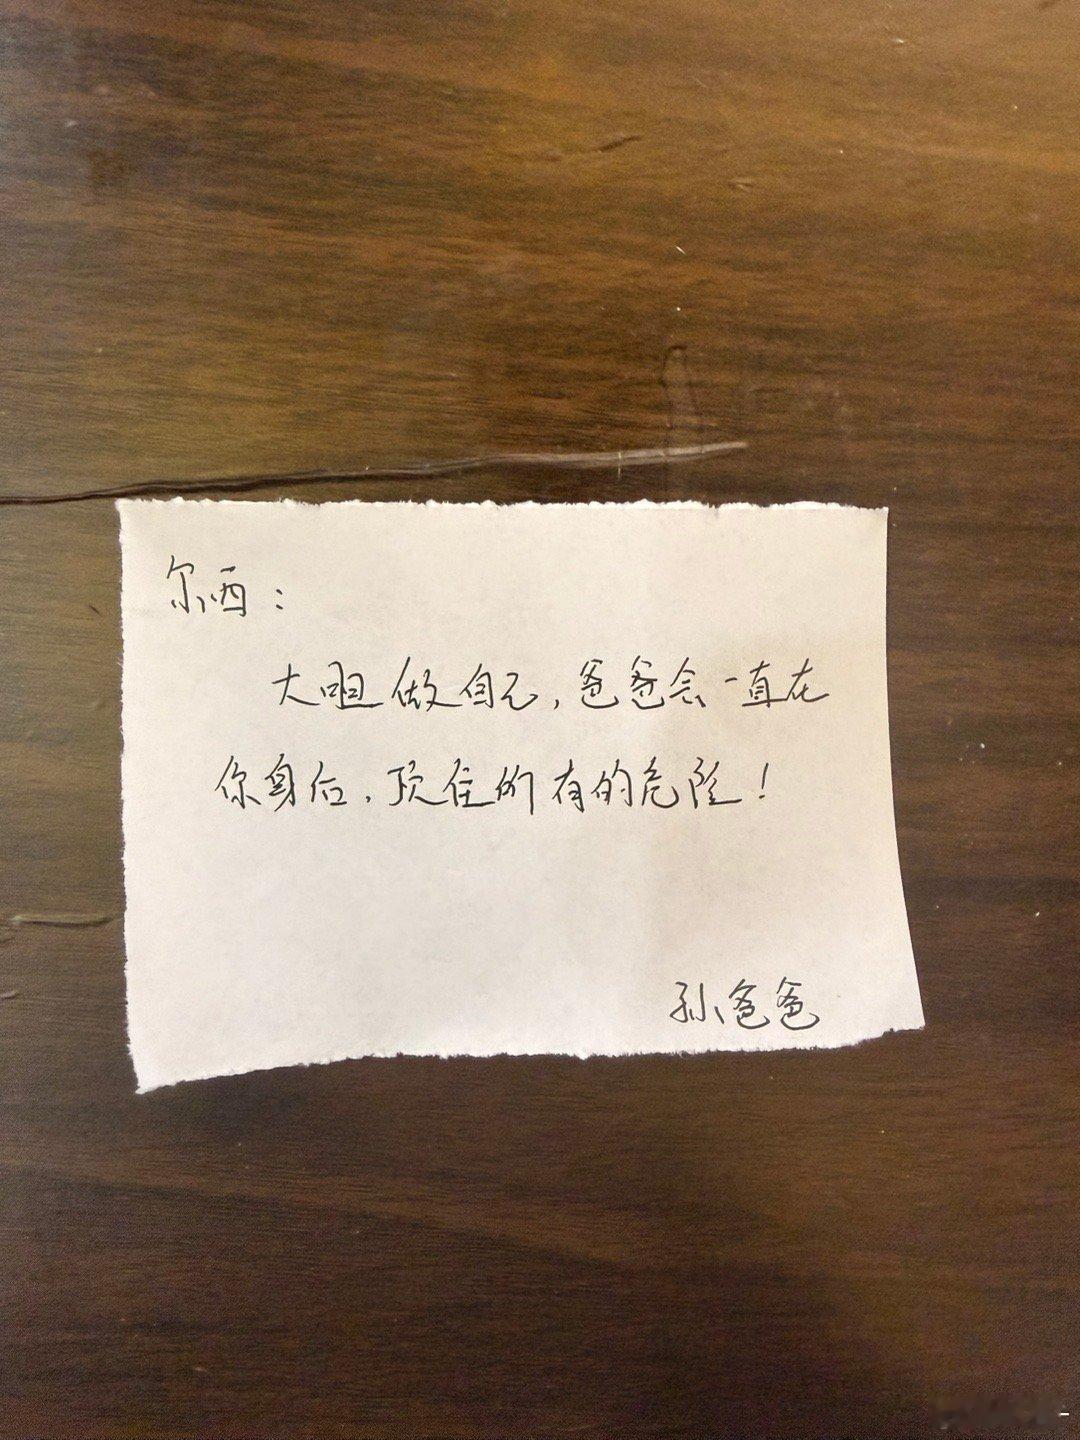 尔西：
大胆做自己，爸爸会一直在
你身后，顶住所有的危险！
孙爸爸